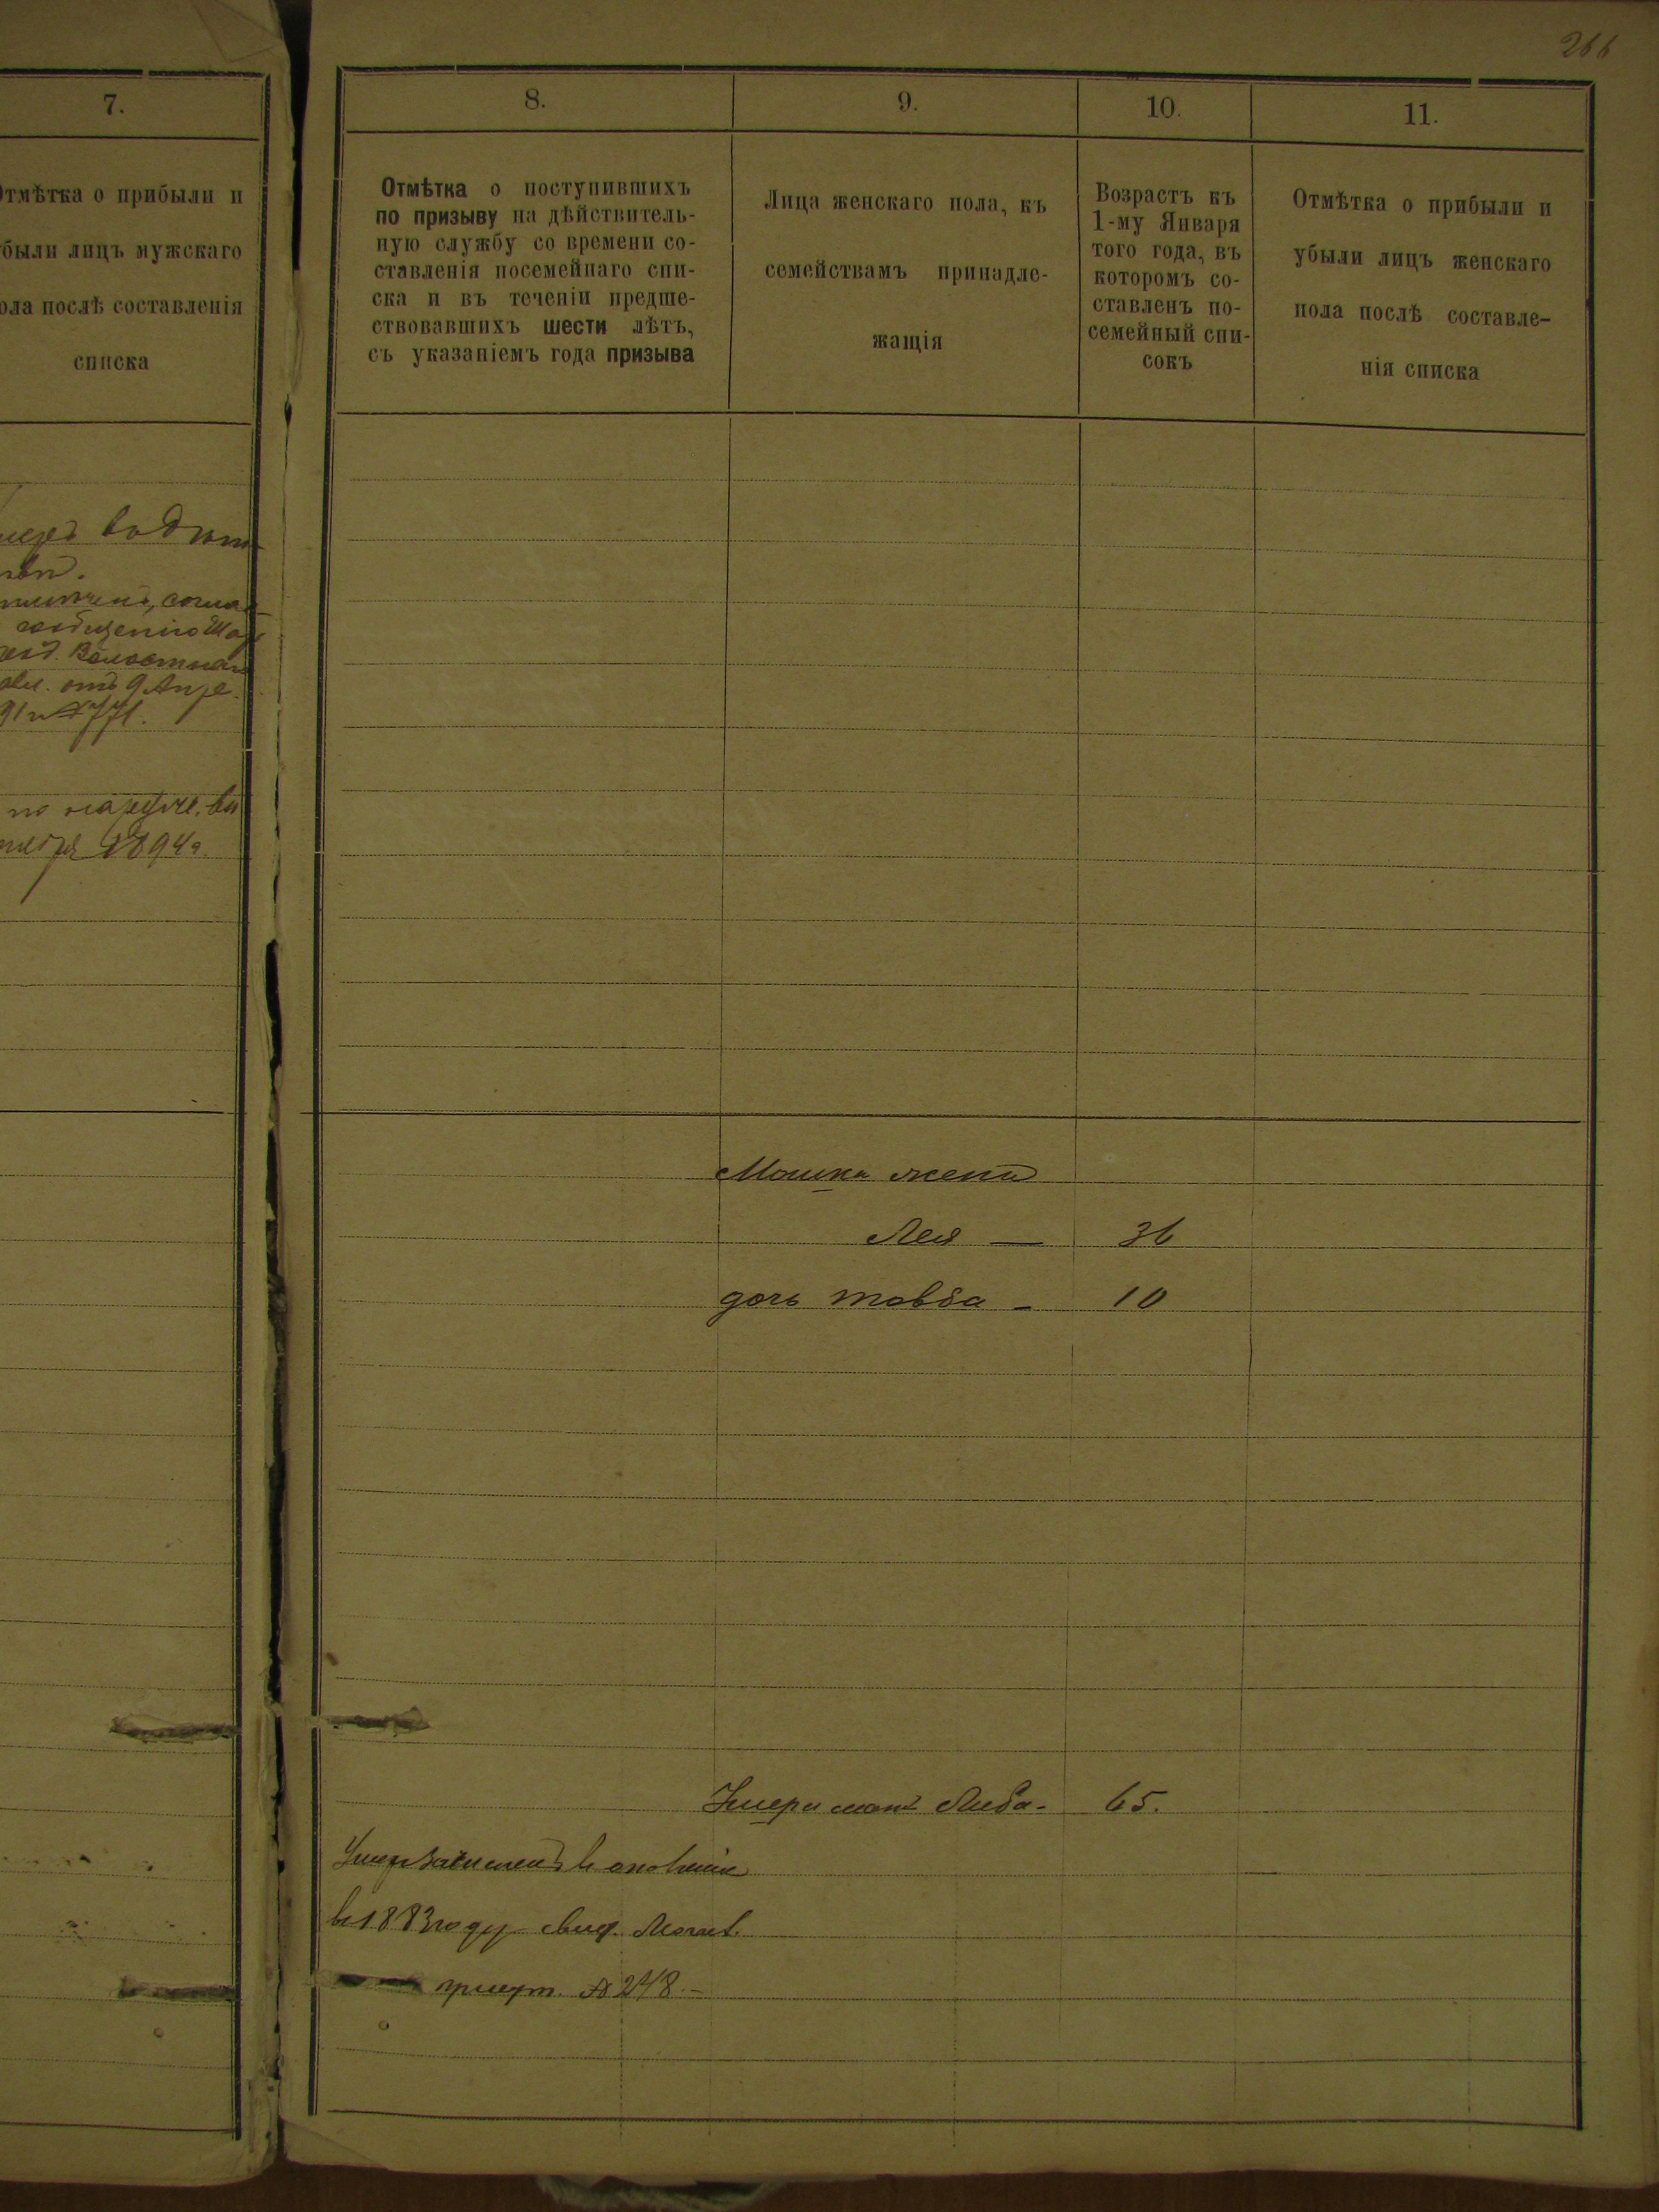 266
7.
Отмѣтка о прибыли и
были лицъ мужскаго
ола послѣ составленія
списка
вод
сообщенію
Волостнаго
отъ 9 Апре.
91 № 771.
по
1894 г.
8.
Отмѣтка о поступившихъ
по призыву на дѣйствитель-
ную службу со времени со-
ставленія посемейнаго спи-
ска и въ теченіи предше-
ствовавшихъ шести лѣтъ,
съ указаніемъ года призыва
9.
Лица женскаго пола, къ
семействамъ принадле-
жащія
10.
Возрастъ къ
1-му Января
того года, въ
которомъ со-
ставленъ по-
семейный спи-
сокъ
11.
Отмѣтка о прибыли и
убыли лицъ женскаго
пола послѣ составле-
нія списка
Мошка жена
Лея — 36
дочь Товба - 10
мать Либа - 65.
зачисленъ в ополченіе
в 1883 году свид. Могил.
присут. № 248. -